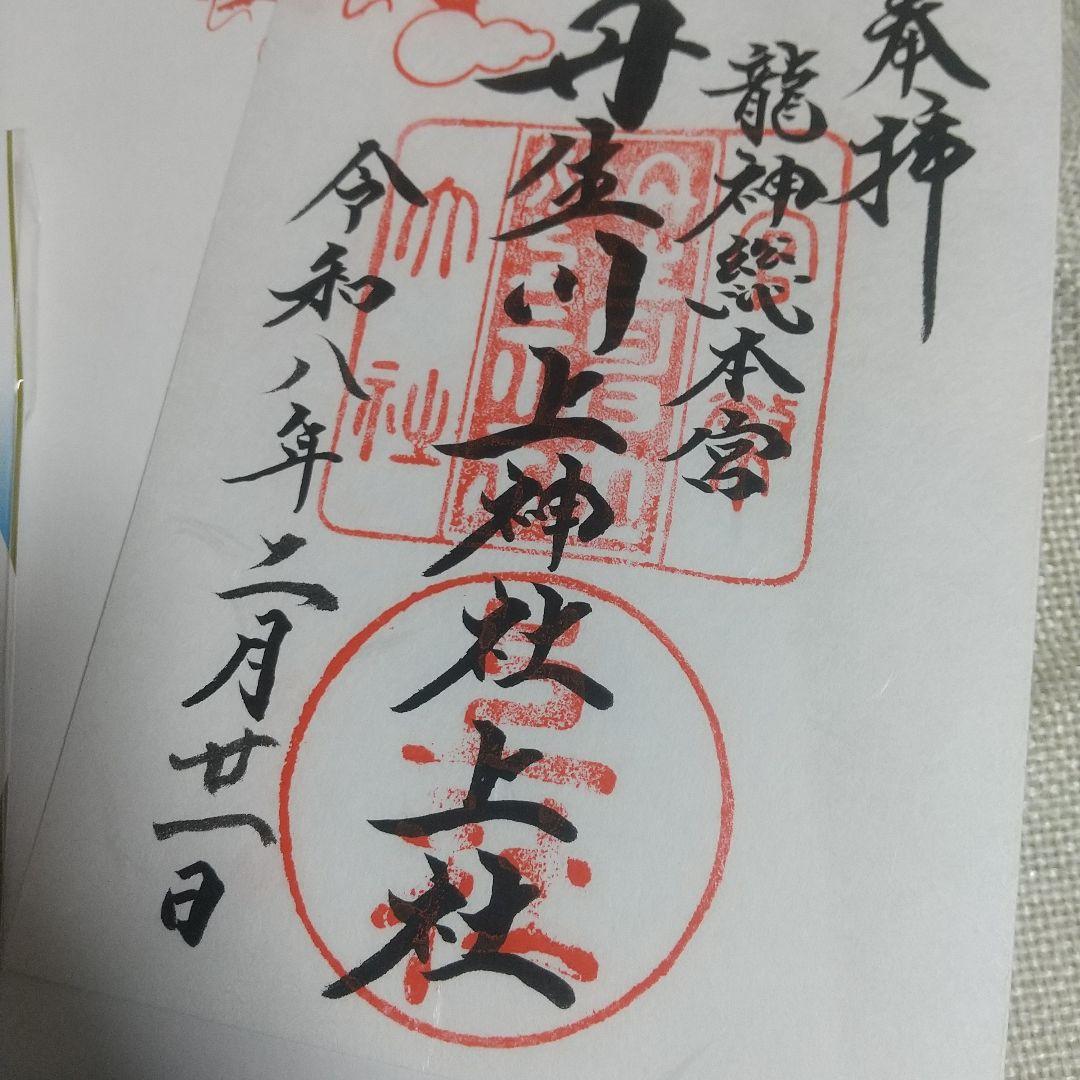 奉拝
龍神総本宮
丹生川上神社上社
令和八年二月廿一日
大社